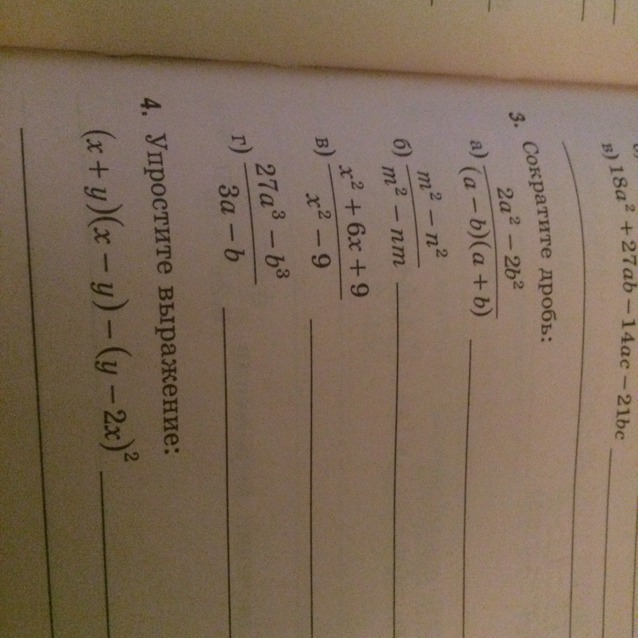 в) 18a² + 27ab − 14ac − 21bc
3. Сократите дробь:
а) (2a² − 2b²)/((a − b)(a + b))
б) (m² − n²)/(m² − nm)
в) (x² + 6x + 9)/(x² − 9)
г) (27a³ − b³)/(3a − b)
4. Упростите выражение:
(x + y)(x − y) − (y − 2x)²